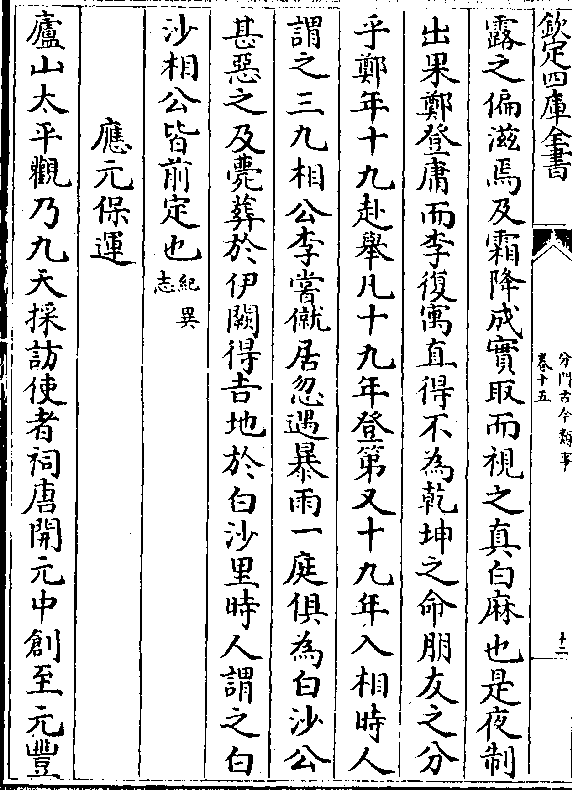 欽定四庫全書
分門古今類事
卷十五
十二
露之偏滋焉及霜降成實取而視之真白麻也是夜制
出果鄭登庸而李復寓直得不為乾坤之命朋友之分
乎鄭年十九赴舉凡十九年登第又十九年入相時人
謂之三九相公李嘗僦居忽遇暴雨一庭俱為白沙公
甚惡之及薨葬於伊闕得吉地於白沙里時人謂之白
沙相公皆前定也紀異志
應元保運
廬山太平觀乃九天採訪使者祠唐開元中創至元豐